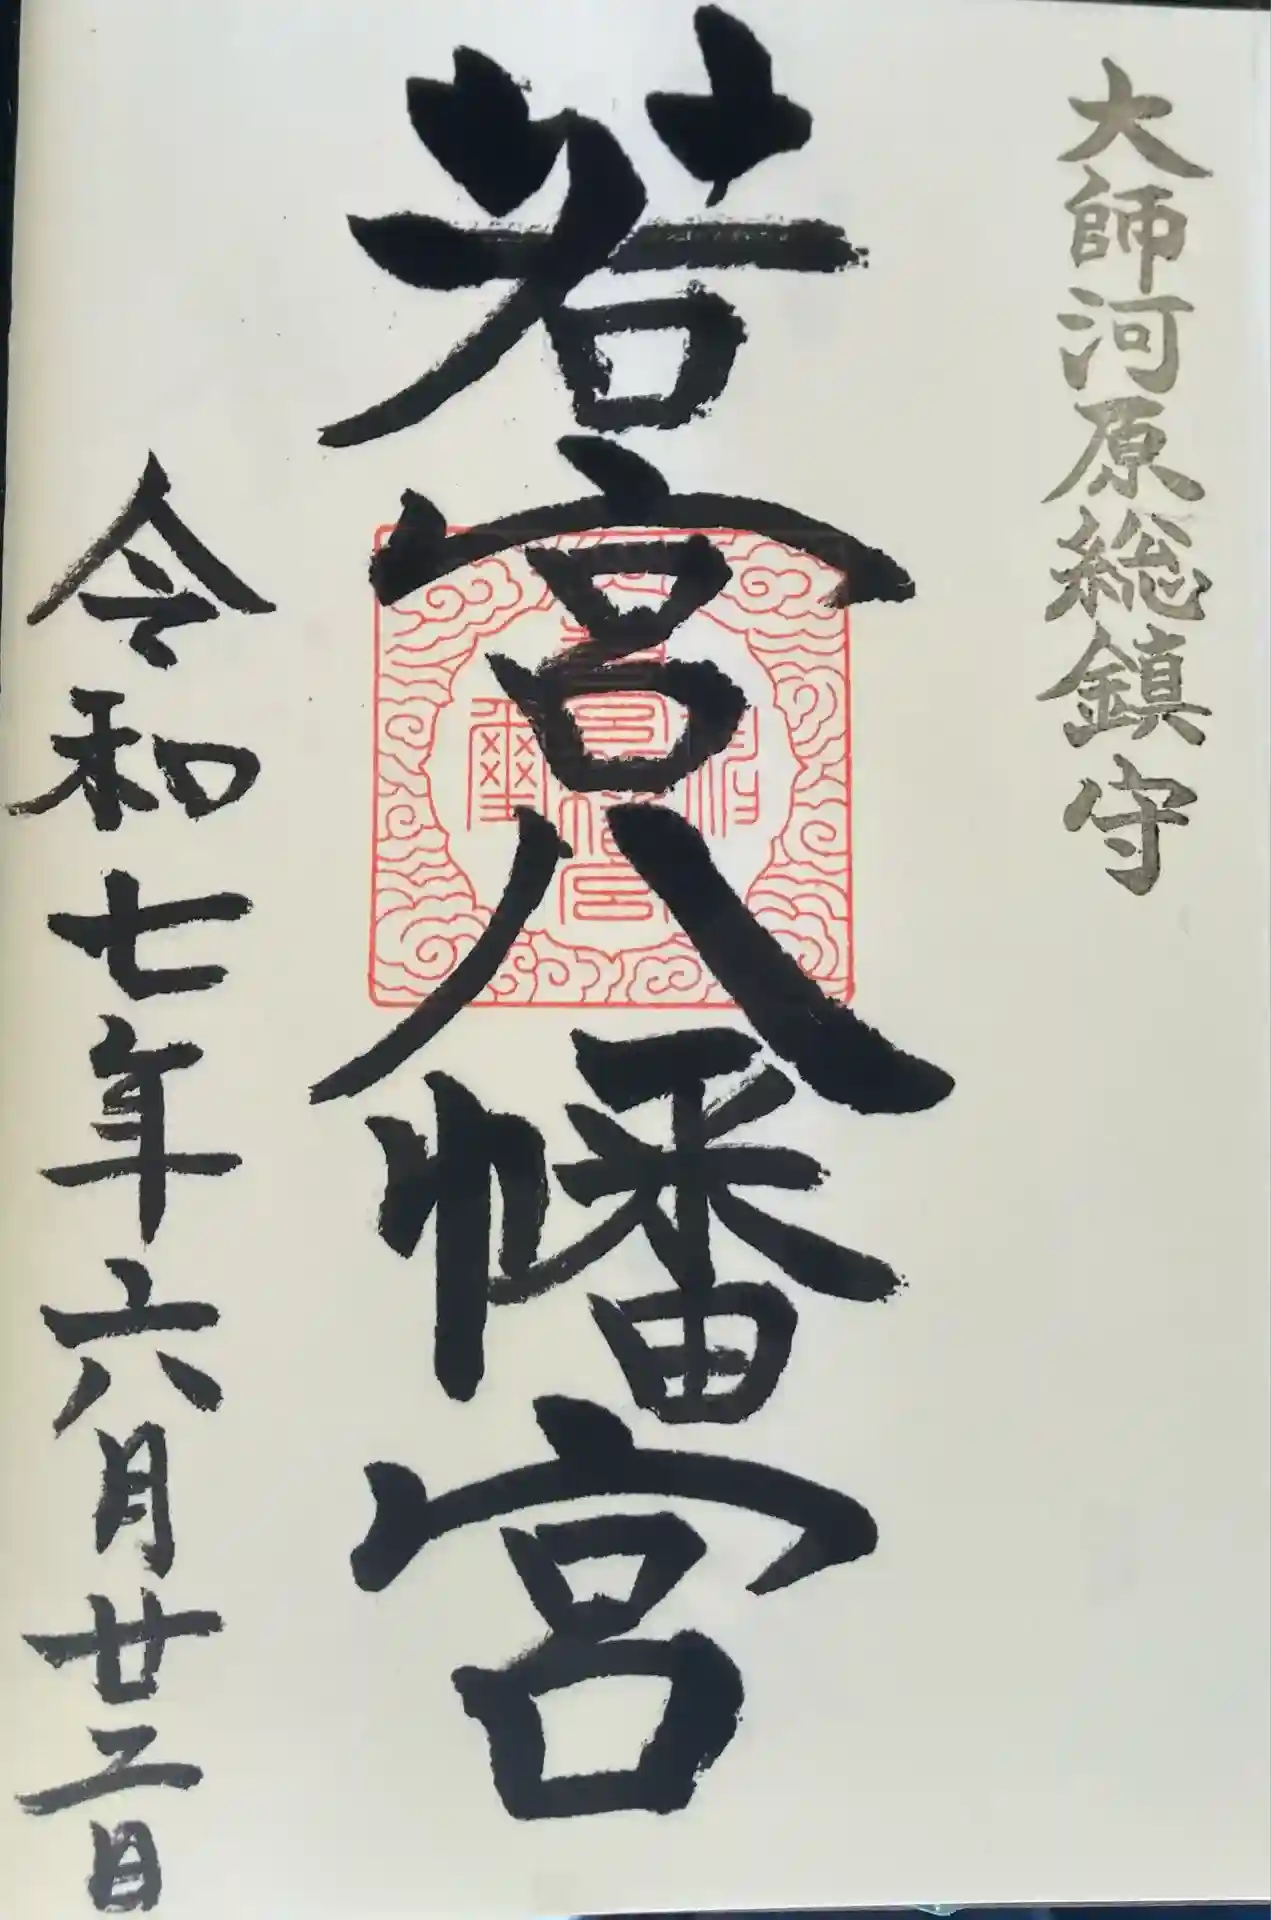 大師河原総鎮守
若宮八幡宮
令和七年六月廿二日